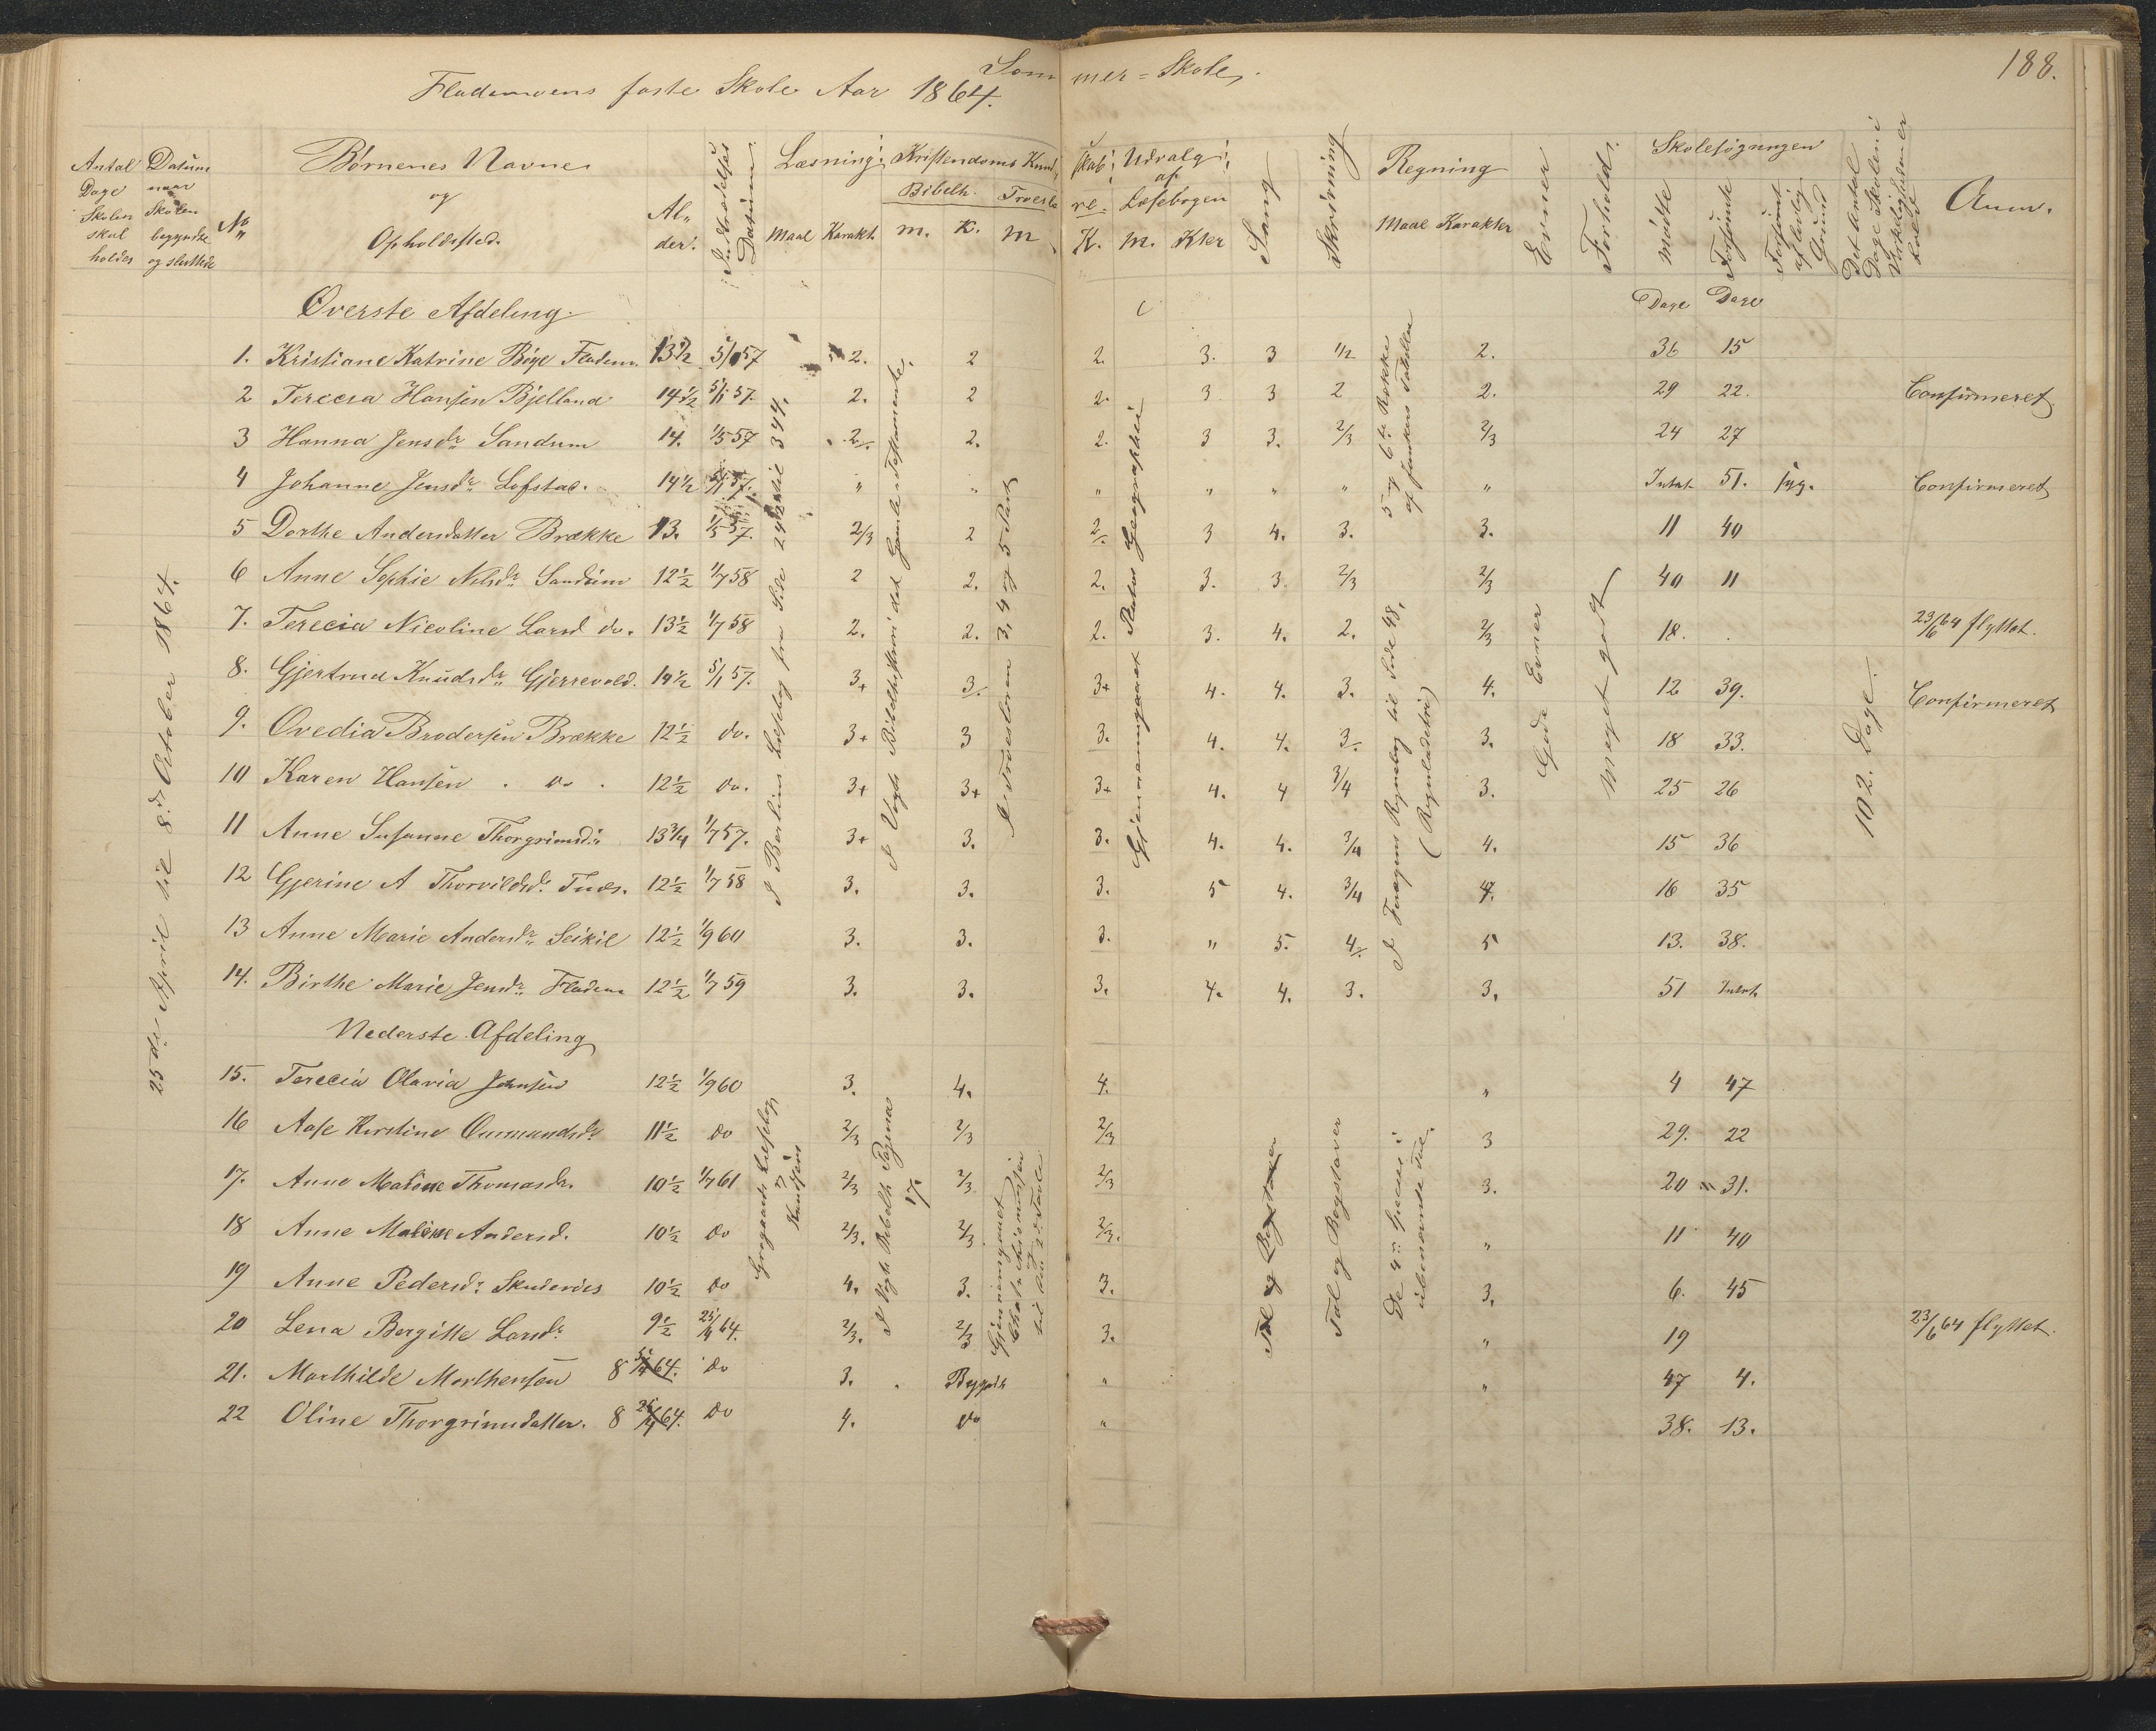 188.
Flademoens faste Skole Aar 1864. Sommer = Skole.
Antal Dage Skolen skal holdes
Datum naar Skolen begyndte og sluttede
No
Børnenes Navne og Opholdssted.
Alder.
Indtrædelses Datum.
Læsning: Maal Karakt.
Kristendoms Kundskab:
Bibelh. m. K.
Troeslære: m. K.
Udvalg af Læsebogen m. Kter
Sang
Skrivning
Regning Maal Karakter
Evner
Forhold.
Skolesøgningen
mødte
Forsømte
Forsømt af lovlig Grund
Det Antal Dage Skolen i Virkeligheden er holdt
Anm.
25de April til 8de October 1864.
Øverste Afdeling.
Dage Dage
1. Kristiane Katrine Bøye Fladem. 13 1/2 5/1 57 2. 2 2. 3. 3 1/2 2. 36 15
2 Terecia Hansen Bjelland 14 1/2 5/1 57. 2. 2 2. 3 3 2 2. 29 22. Confirmeret.
3 Hanna Jensdr Sandum 14. 1/5 57 2/. 2. 2. 3 3. 2/3 2/3 24 27
4 Johanne Jensdr Lofstad. 14 1/2 5/1 57. " " " " " " " Intet 51. syg. Confirmeret
5 Dorthe Andersdatter Brække 13. 1/5 57. 2/3 2 2/. 3 4. 3. 3. 11 40
6 Anne Sophie Nilsdr Sandum 12 1/2 1/7 58 2 2. 2. 3. 3. 2/3 2/3 40 11
7. Terecia Nicoline Larsd do. 13 1/2 1/7 58 2. 2. 2. 3. 4. 2. 2/3 18. . 23/6 64 flyttet.
8. Gjertrud Knudsdr Gjerrevold. 14 1/2 5/1 57. 3+ 3/. 3+ 4. 4. 3. 4. 12 39. Confirmeret
9. Ovedia Brodersen Brække 12 1/2 do. 3+ 3 3. 4. 4. 3/. 3. 18 33.
10 Karen Hansen . do . 12 1/2 do. 3+ 3+ 3+ 4. 4 3/4 3. 25 26
11 Anne Susanne Thorgrimsdr 13 3/4 1/7 57. 3+ 3. 3. 4. 4. 3/4 4. 15 36
12 Gjerine A Thorvildsdr. 12 1/2 1/7 58 3. 3. 3. 5 4. 3/4 4. 16 35
13 Anne Marie Andersdr Leikil 12 1/2 1/9 60 3. 3. 3. " 5. 4/. 5 13. 38.
14. Birthe Marie Jensdr Fladem 12 1/2 1/7 59 3. 3. 3. 4. 4. 3. 3. 51 Intet.
I Vogts Bibelhistorie det Gamle Testamente.
3, 4 og 5 Part
Gjennemgaaet Geographie
5 og 6te Række
til Side 48.
Gode Evner
Meget godt
102. Dage.
Nederste Afdeling
15. Terecia Olavia Jensen 12 1/2 1/9 60 3. 4. 4. " 4 47
16 Aase Kirstine Ommundsdr 11 1/2 do 2/3 2/3 2/3 3 29. 22
17. Anne Malene Thomasdr. 10 1/2 1/7 61 2/3 2/3 2/3 3. 20 " 31.
18 Anne Malene Andersd. 10 1/2 do 2/3. 2/3 2/3. " 11 40
19 Anne Pedersdr 10 1/2 do 4. 3. 3. 3. 6. 45
20 Lena Bergitte Larsdr 9 1/2 25/4 64. 2/3. 2/3 3. " 19 23/6 64 flyttet.
21. Marthilde Morthensen 8 25/4 64. do 3. . Begyndt " " 47 4.
22 Oline Thorgrimsdatter. 8 25/4 64. do 4. do " 38. 13.
I Vogts Bibelh
17.
Tal og Bogstaver
Tal og Bogstaver